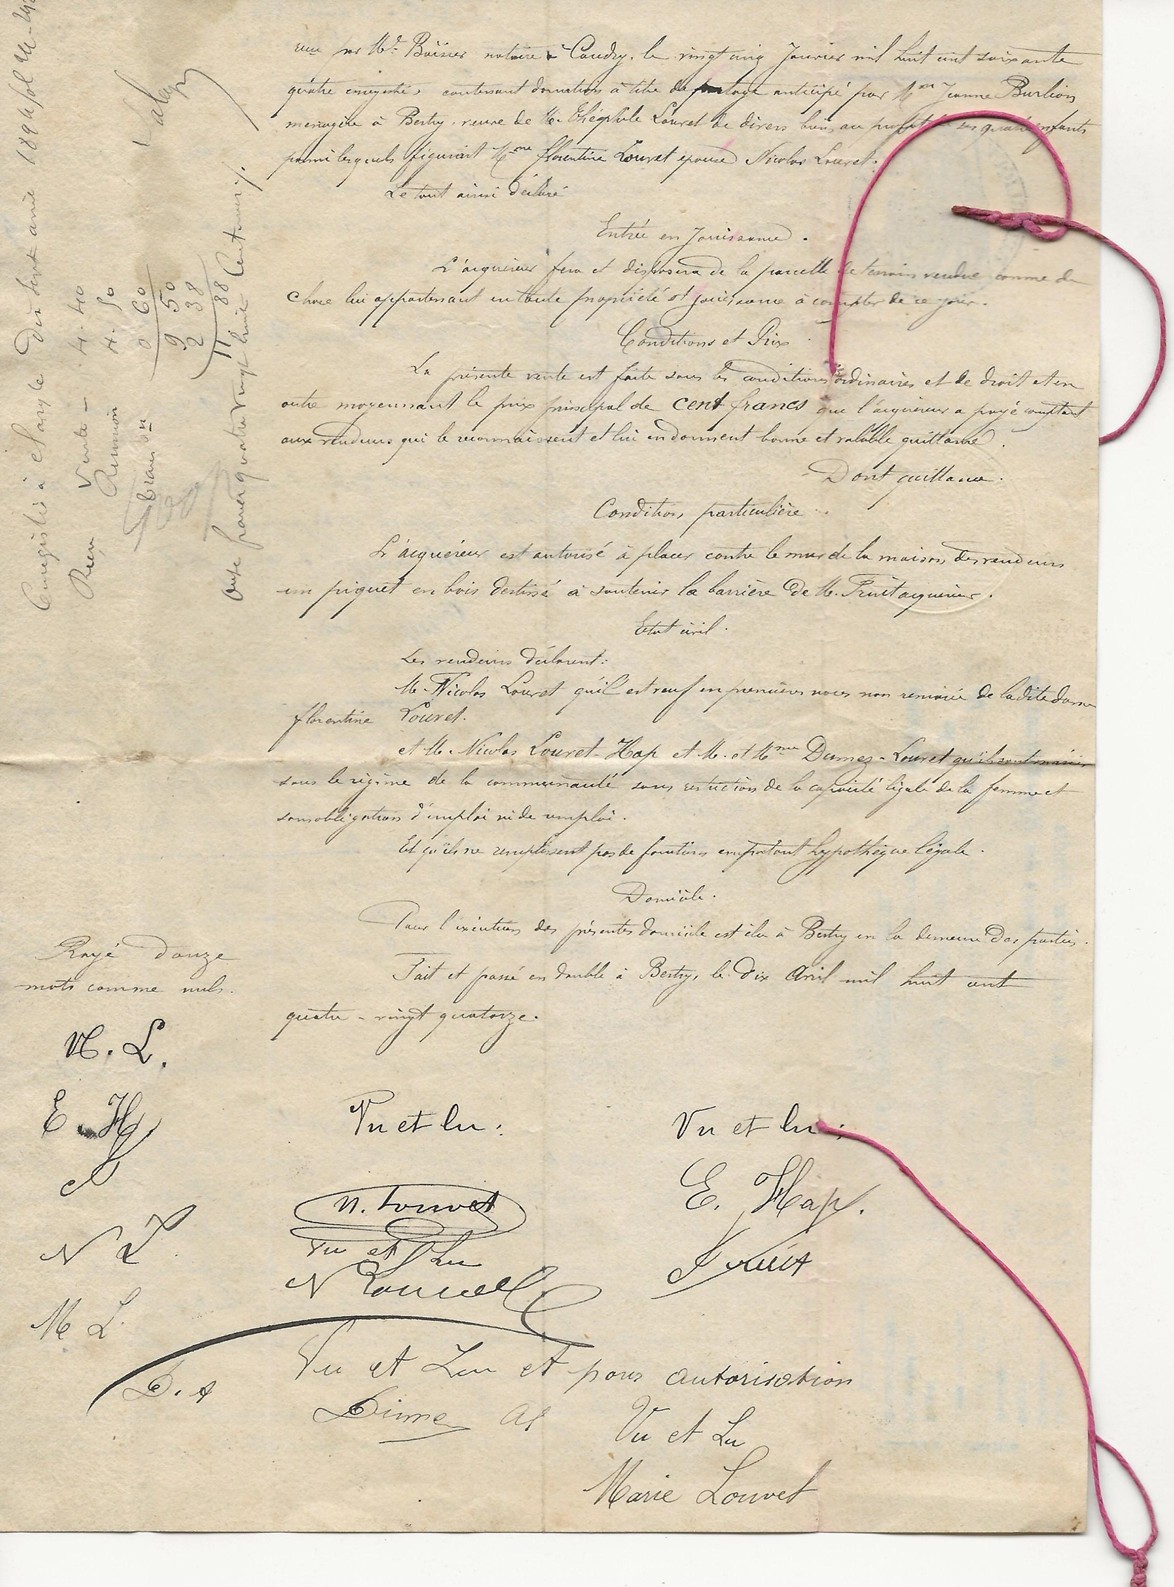 par Me Boisier notaire à Caudry, le vingt cinq Janvier mil huit cent soixante
quatre enregistré, contenant donation à titre de partage anticipé par Mme Jeanne Burlion
ménagère à Bertry, veuve de M. Théophile Louvet de divers biens au profit de ses quatre enfants
parmi lesquels figurait Mme florentine Louvet épouse Nicolas Louvet.
Le tout ainsi déclaré
Entrée en Jouissance.
L'acquéreur fera et disposera de la parcelle de terrain vendue comme de
chose lui appartenant en toute propriété et jouissance à compter de ce jour.
Conditions et Prix
La présente vente est faite sous les conditions ordinaires et de droit et en
outre moyennant le prix principal de cent francs que l'acquéreur a payé comptant
aux vendeurs qui le reconnaissent et lui en donnent bonne et valable quittance.
Dont quittance.
Condition particulière
L'acquéreur est autorisé à placer contre le mur de la maison des vendeurs
un piquet en bois destiné à soutenir la barrière de M. Fruit acquéreur.
Etat civil.
Les vendeurs déclarent:
M. Nicolas Louvet qu'il est veuf en premières noces non remarié de la dite dame
florentine Louvet.
et M. Nicolas Louvet-Hap et M. et Mme Dumez-Louvet qu'ils sont mariés
sous le régime de la communauté sans restriction de la capacité légale de la femme et
sans obligation d'emploi ni de remploi.
Et qu'ils ne remplissent pas de fonctions emportant hypothèque légale.
Domicile.
Pour l'exécution des présentes domicile est élu à Bertry en la demeure des parties.
Fait et passé en double à Bertry, le dix Avril mil huit cent
quatre-vingt quatorze.
Rayé douze
mots comme nuls.
N. L.
E. H
N L
M L
D. A
Vu et lu:
N. Louvet
Vu et Lu
N Louvet
Vu et lu:
E. Hap.
Fruit
Vu et Lu et pour autorisation
Vu et Lu
Marie Louvet
Enregistré à dix sept avril 1894
Reçu Vente 4.40
4.50
0 60
9 50
2 38
11 88
Onze francs quatre vingt huit Centimes